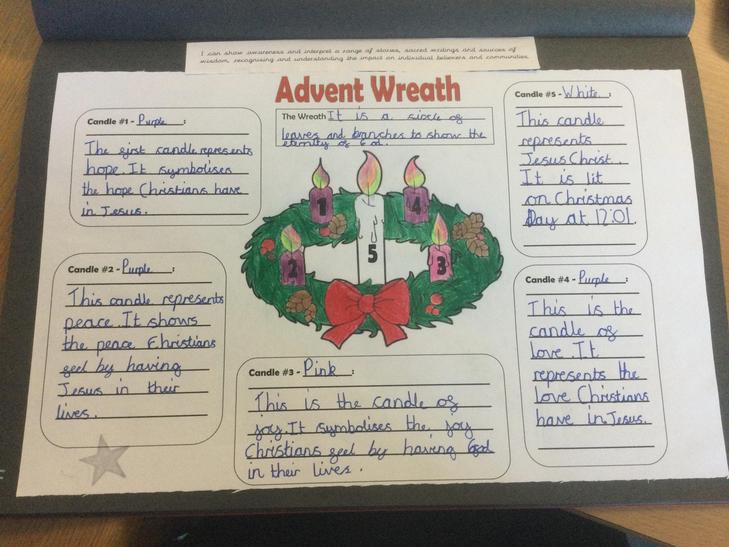 I can show awareness and interpret a range of stories, sacred writings and sources of
wisdom, recognising and understanding the impact on individual believers and communities.
Advent Wreath
The Wreath It is a circle of
leaves and branches to show the
eternity of God.
Candle #1 - Purple :
The first candle represents
hope. It symbolises
the hope Christians have
in Jesus.
Candle #2 - Purple :
This candle represents
peace. It shows
the peace Christians
feel by having
Jesus in their
lives.
Candle #3 - Pink :
This is the candle of
joy. It symbolises the joy
Christians feel by having God
in their lives.
Candle #4 - Purple :
This is the
candle of
love. It
represents the
love Christians
have in Jesus.
Candle #5 - White :
This candle
represents
Jesus Christ.
It is lit
on Christmas
Day at 12:01.
1
4
2
5
3